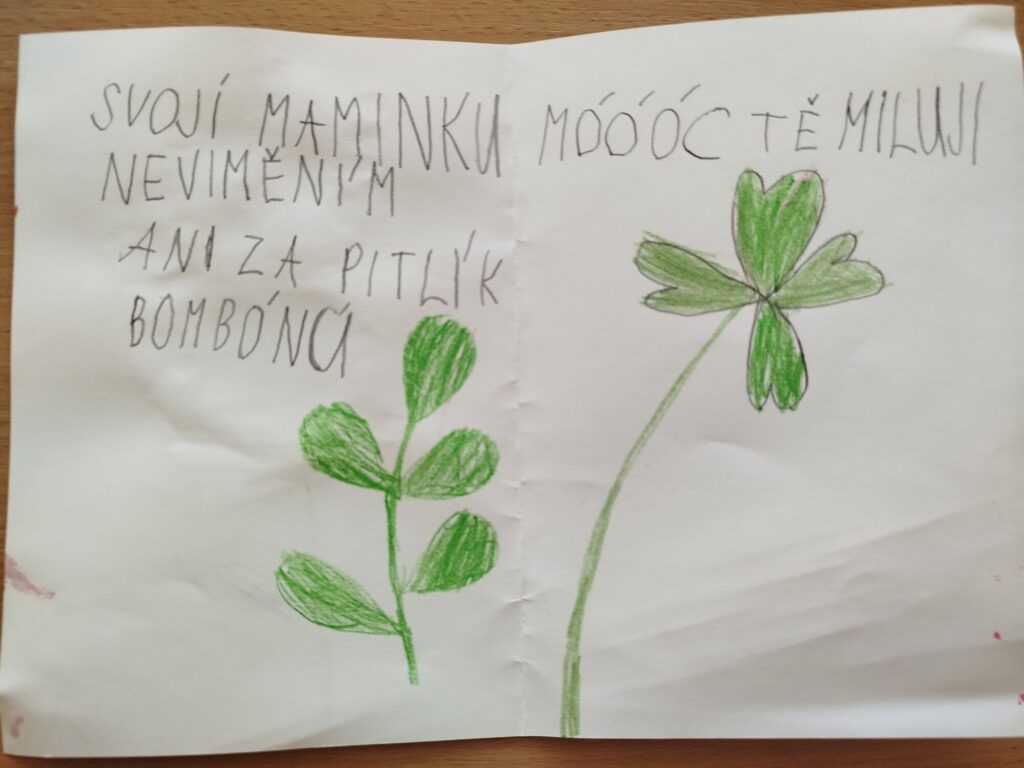 SVOJÍ MAMINKU
NEVIMĚNÍM
ANI ZA PITLÍK
BOMBÓNŮ
MÓÓÓC TĚ MILUJI